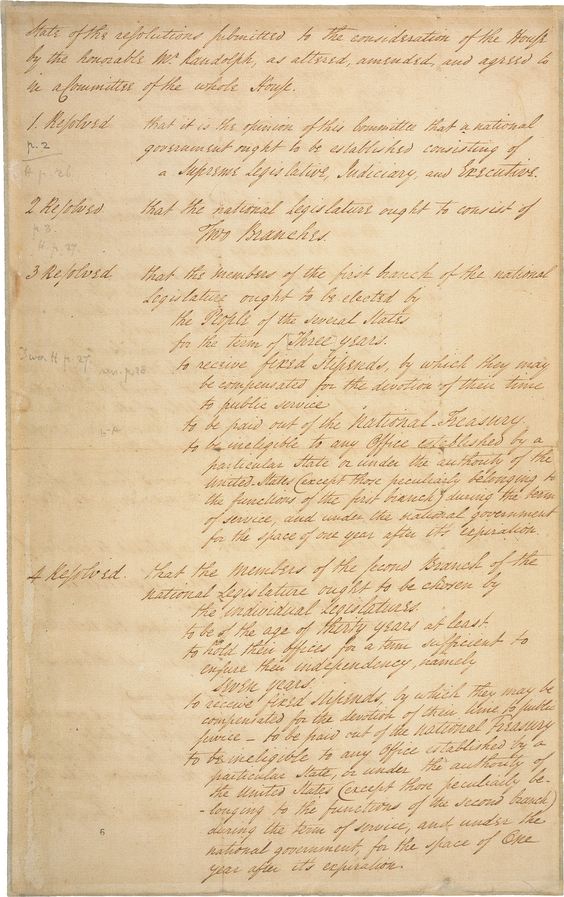 State of the resolutions submitted to the consideration of the House
by the honorable Mr Randolph, as altered, amended, and agreed to
in a Committee of the whole House.
1. Resolved that it is the opinion of this Committee that a national
p. 2
government ought to be established consisting of
H p. 26
a Supreme Legislative, Judiciary, and Executive.
2 Resolved that the national Legislature ought to consist of
p. 3.
Two Branches.
H. p. 27.
3 Resolved that the members of the first branch of the national
Legislature ought to be elected by
the People of the several States
for the term of Three years.
to receive fixed Stipends, by which they may
H p. 27.
be compensated for the devotion of their time
to public service
to be paid out of the National-Treasury.
to be ineligible to any Office established by a
particular State or under the authority of the
United-States (except those peculiarly belonging to
the functions of the first branch) during the term
of service, and under the national government
for the space of one year after it's expiration.
4 Resolved. that the members of the second Branch of the
national Legislature ought to be chosen by
the individual Legislatures.
to be of the age of thirty years at least.
to hold their offices for a term sufficient to
ensure their independency, namely
seven years.
to receive fixed stipends, by which they may be
compensated for the devotion of their time to public
service - to be paid out of the National Treasury
to be ineligible to any Office established by a
particular State, or under the authority of
the United States (except those peculiarly be-
-longing to the functions of the second branch)
during the term of service, and under the
6
national government, for the space of One
year after it's expiration.